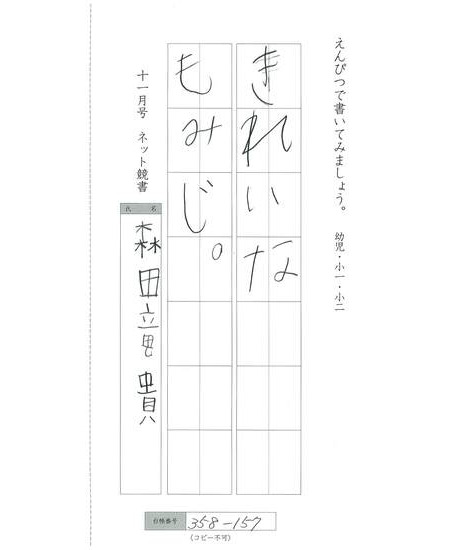 えんぴつで書いてみましょう。 幼児・小一・小二
きれいな
もみじ。
十一月号 ネット競書
氏名
森田
台帳番号 358-157
(コピー不可)